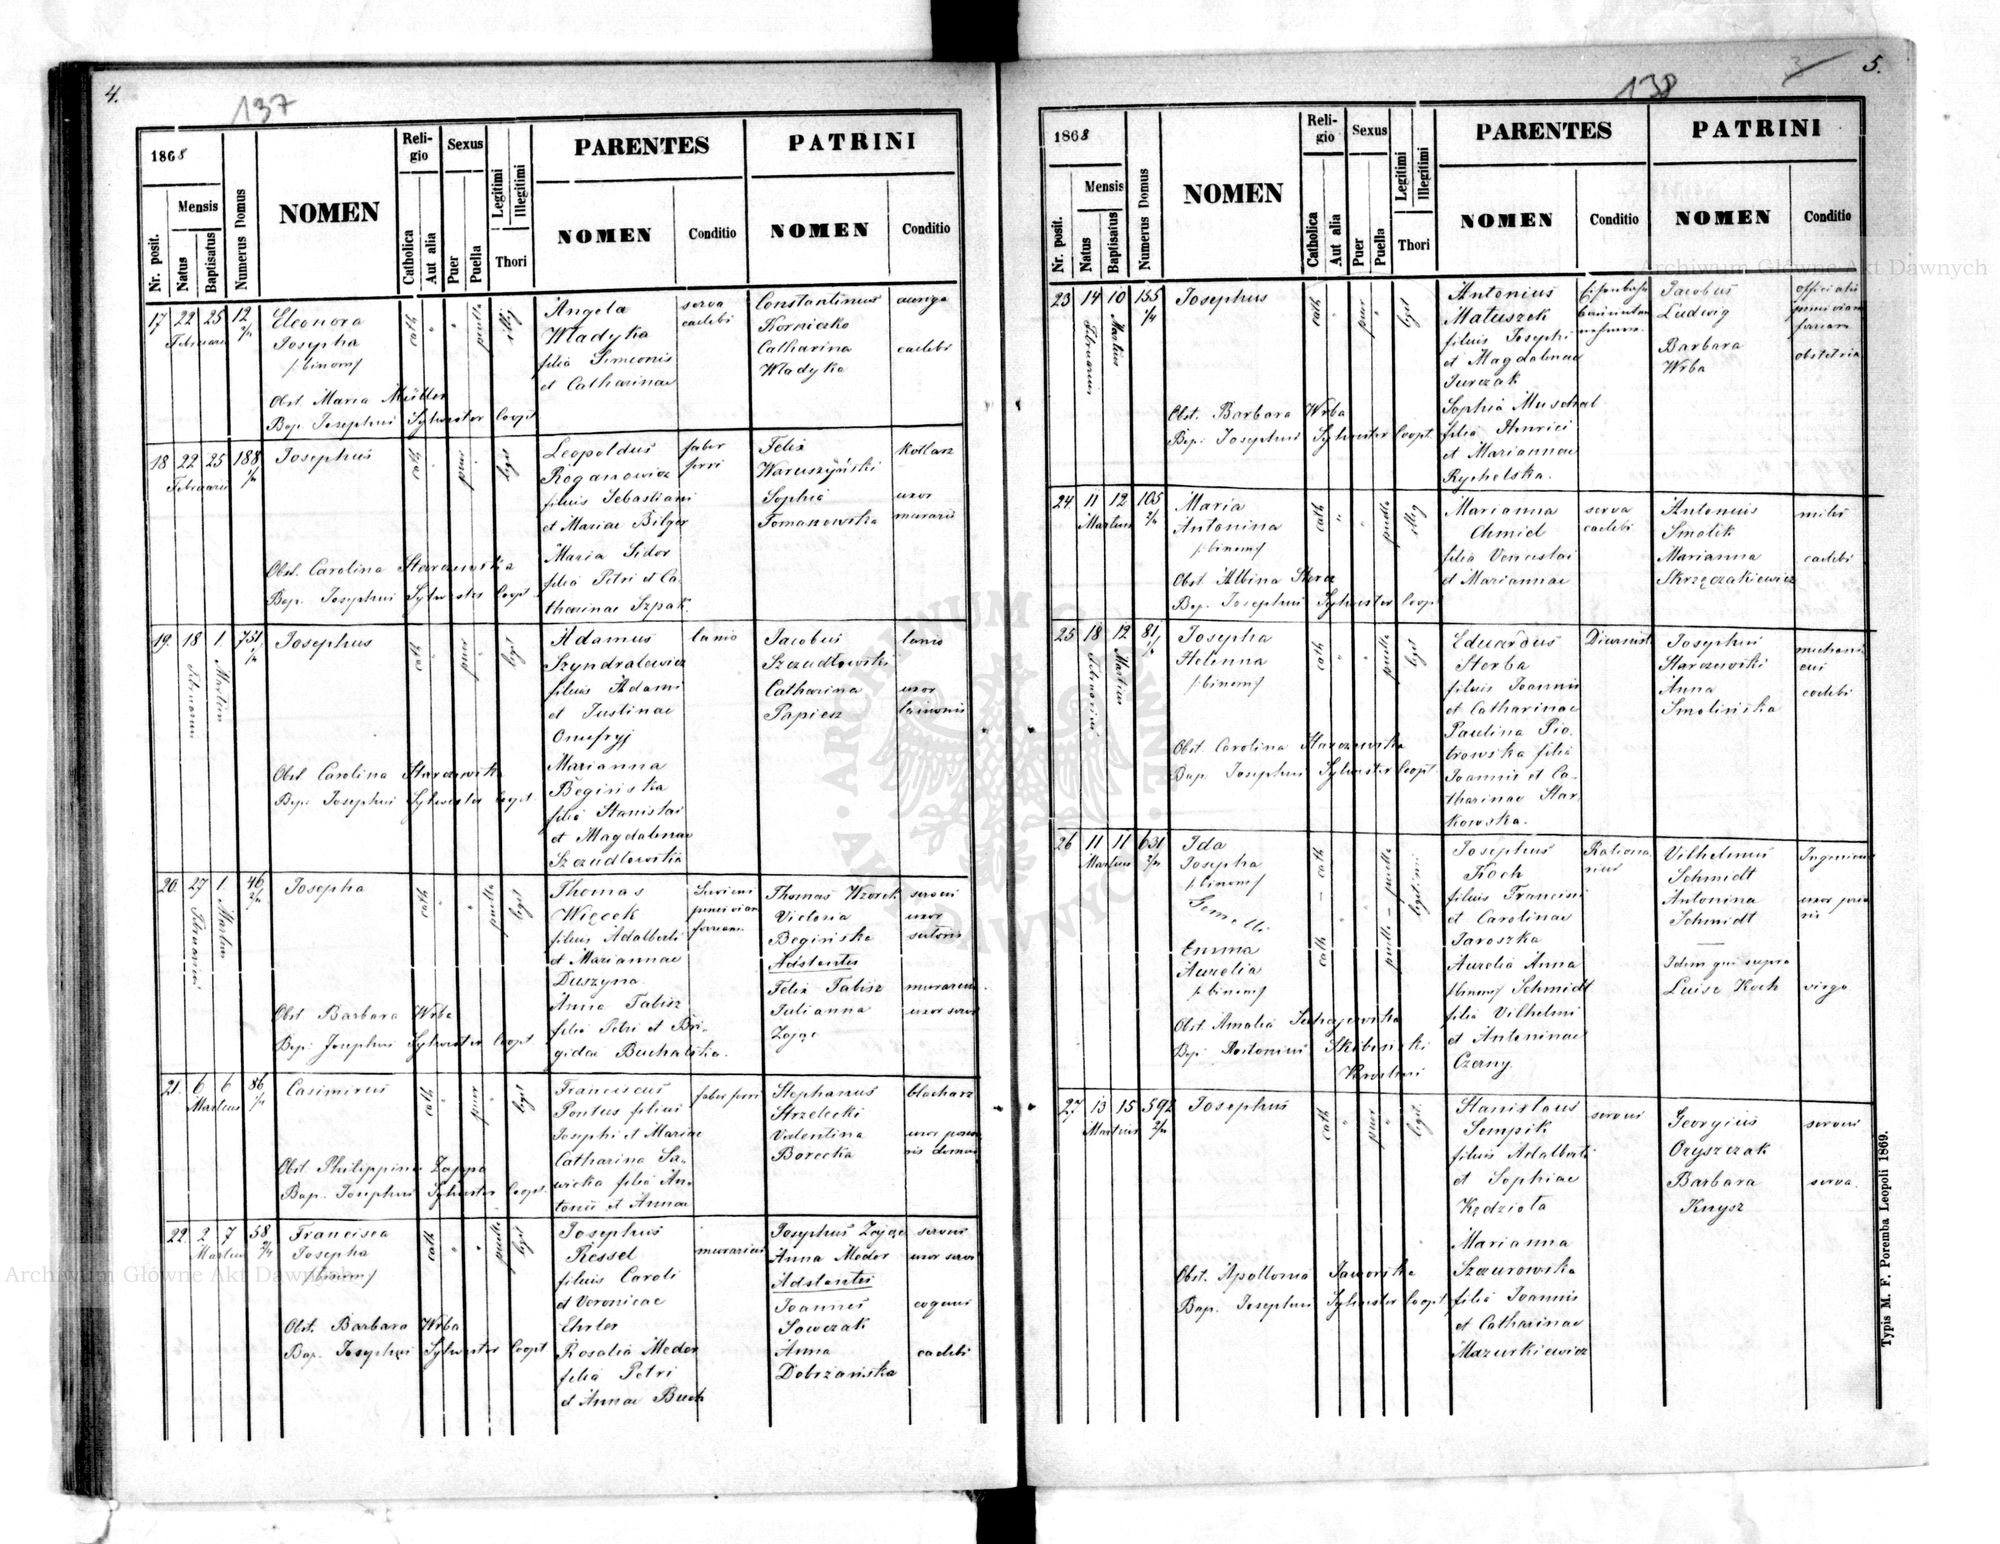 4.
137
1868
Mensis
Nr. posit.
Natus
Baptisatus
Numerus Domus
NOMEN
Religio
Catholica
Aut alia
Sexus
Puer
Puella
Legitimi
Illegitimi
Thori
PARENTES
NOMEN
Conditio
PATRINI
NOMEN
Conditio
17 22 25 12 2/4
Februarii
Eleonora
Josepha
/:binom:/
cath " " puella illeg
Obst. Maria Müller
Bap. Josephus Sylwester Coopt
Angela
Wladyka
filia Simeonis
et Catharinae
serva
caelebs
Constantinus
Korniczko
Catharina
Wladyka
auriga
caelebs
18 22 25 188 2/4
Februarii
Josephus
cath " puer " legit
Obst. Carolina Starczewska
Bap. Josephus Sylwester Coopt
Leopoldus
Roganowicz
filius Sebastiani
et Mariae Bilger
Maria Sidor
filia Petri et Ca-
tharinae Szpak.
faber
ferri
Felix
Waruszyński
Sophia
Tomanowska
Kotlarz
uxor
murarii
19. 18 1. 751 1/4
Februarii Martii
Josephus
cath " puer " legit
Obst Carolina Starczewska
Bap. Josephus Sylwester Coopt
Adamus
Szyndralewicz
filius Adami
et Justinae
Onufryj
Marianna
Begińska
filia Stanislai
et Magdalenae
Szczudlowska
lanio
Jacobus
Szczudlowski
Catharina
Papiesz
lanio
uxor
lanionis
20. 27 1. 46 2/4
Februarii Martius
Josepha
cath " " puella legit
Obst Barbara Wrba
Bap. Josephus Sylwester Coopt
Thomas
Więcek
filius Adalberti
et Mariannae
Duszyna
Anna Tabisz
filia Petri et Bri-
gidae Buchalska.
Thomas Wzorek
Victoria
Begińska
Adstantes
Felix Tabisz
Julianna
Zając
servus
uxor
sutoris
murarius
uxor servi
21. 6 6 86 1/4
Martius
Casimirus
cath " puer " legit
Obst Philippina Zappa
Bap. Josephus Sylwester Coopt.
Franciscus
Pontus filius
Josephi et Mariae
Catharina Sa-
wicka filia An-
tonii et Annae
faber ferri
Stephanus
Strzelecki
Valentina
Borecka
blacharz
22. 2 7 58 2/4
Martius
Francisca
Josepha
/:binom:/
cath " " puella legit
Obst. Barbara Wrba
Bap. Josephus Sylwester Coopt
Josephus
Ressel
filius Caroli
et Veronicae
Ehrler
Rosalia Meder
filia Petri
et Annae Buch
murarius
Josephus Zając
Anna Meder
Adstantes
Joannes
Sowczak
Anna
Dobrzańska
servus
uxor servi
coquus
caelebs
5.
138
3
1868
Mensis
Nr. posit.
Natus
Baptisatus
Numerus Domus
NOMEN
Religio
Catholica
Aut alia
Sexus
Puer
Puella
Legitimi
Illegitimi
Thori
PARENTES
NOMEN
Conditio
PATRINI
NOMEN
Conditio
23 14 10 155 1/4
Februarius Martius
Josephus
cath " puer " legit
Obst. Barbara Wrba
Bap. Josephus Sylwester Coopt.
Antonius
Matuszek
filius Josephi
et Magdalenae
Jurczak
Sophia Muschal
filia Henrici
et Mariannae
Rychelska.
Jacobus
Ludwig
Barbara
Wrba
obstetrix
24. 11 12 105 2/4
Martius
Maria
Antonina
/:binom:/
cath " " puella illeg
Obst Albina Sterz
Bap. Josephus Sylwester Coopt
Marianna
Chmiel
filia Venceslai
et Mariannae
serva
caelebs
Antonius
Smolik
Marianna
Skrzęczakiewicz
miles
caelebs
25 18 12 81 1/4
Februarius Martius
Josepha
Helenna
/:binom:/
cath " " puella legit
Obst. Carolina Starczewska
Bap. Josephus Sylwester Coopt.
Eduardus
Sterba
filius Joannis
et Catharinae
Paulina Pio-
trowska filia
Joannis et Ca-
tharinae Star-
kowska.
Diurnist
Josephus
Starczewski
Anna
Smolińska
mechani-
cus
caelebs
26 11 11 631 2/4
Martius
Ida
Josepha
/:binom:/
Gemelli
Emma
Aurelia
/:binom:/
cath – cath puella – puella legitimi
Bap. Antonius Skibinski
Josephus
Koch
filius Francisci
et Carolinae
Jaroszka
Aurelia Anna
/:binom:/ Schmidt
filia Vilhelmi
et Antoninae
Czerny.
Rationa-
rius
Vilhelmus
Schmidt
Antonina
Schmidt
Idem qui supra
Luise Koch
virgo
27 13 15 592 2/4
Martius
Josephus
cath " puer " legit.
Obst. Apollonia Jaworska
Bap. Josephus Sylwester Coopt
Stanislaus
Sempik
filius Adalberti
et Sophiae
Kędziola
Marianna
Szczurowska
filia Joannis
et Catharinae
Mazurkiewicz
servus
Georgius
Oryszczak
Barbara
Knysz
servus
serva.
Typis M. F. Poremba Leopoli 1869.
Archiwum Główne Akt Dawnych
Archiwum Główne Akt Dawnych
ARCHIWUM GŁÓWNE AKT DAWNYCH